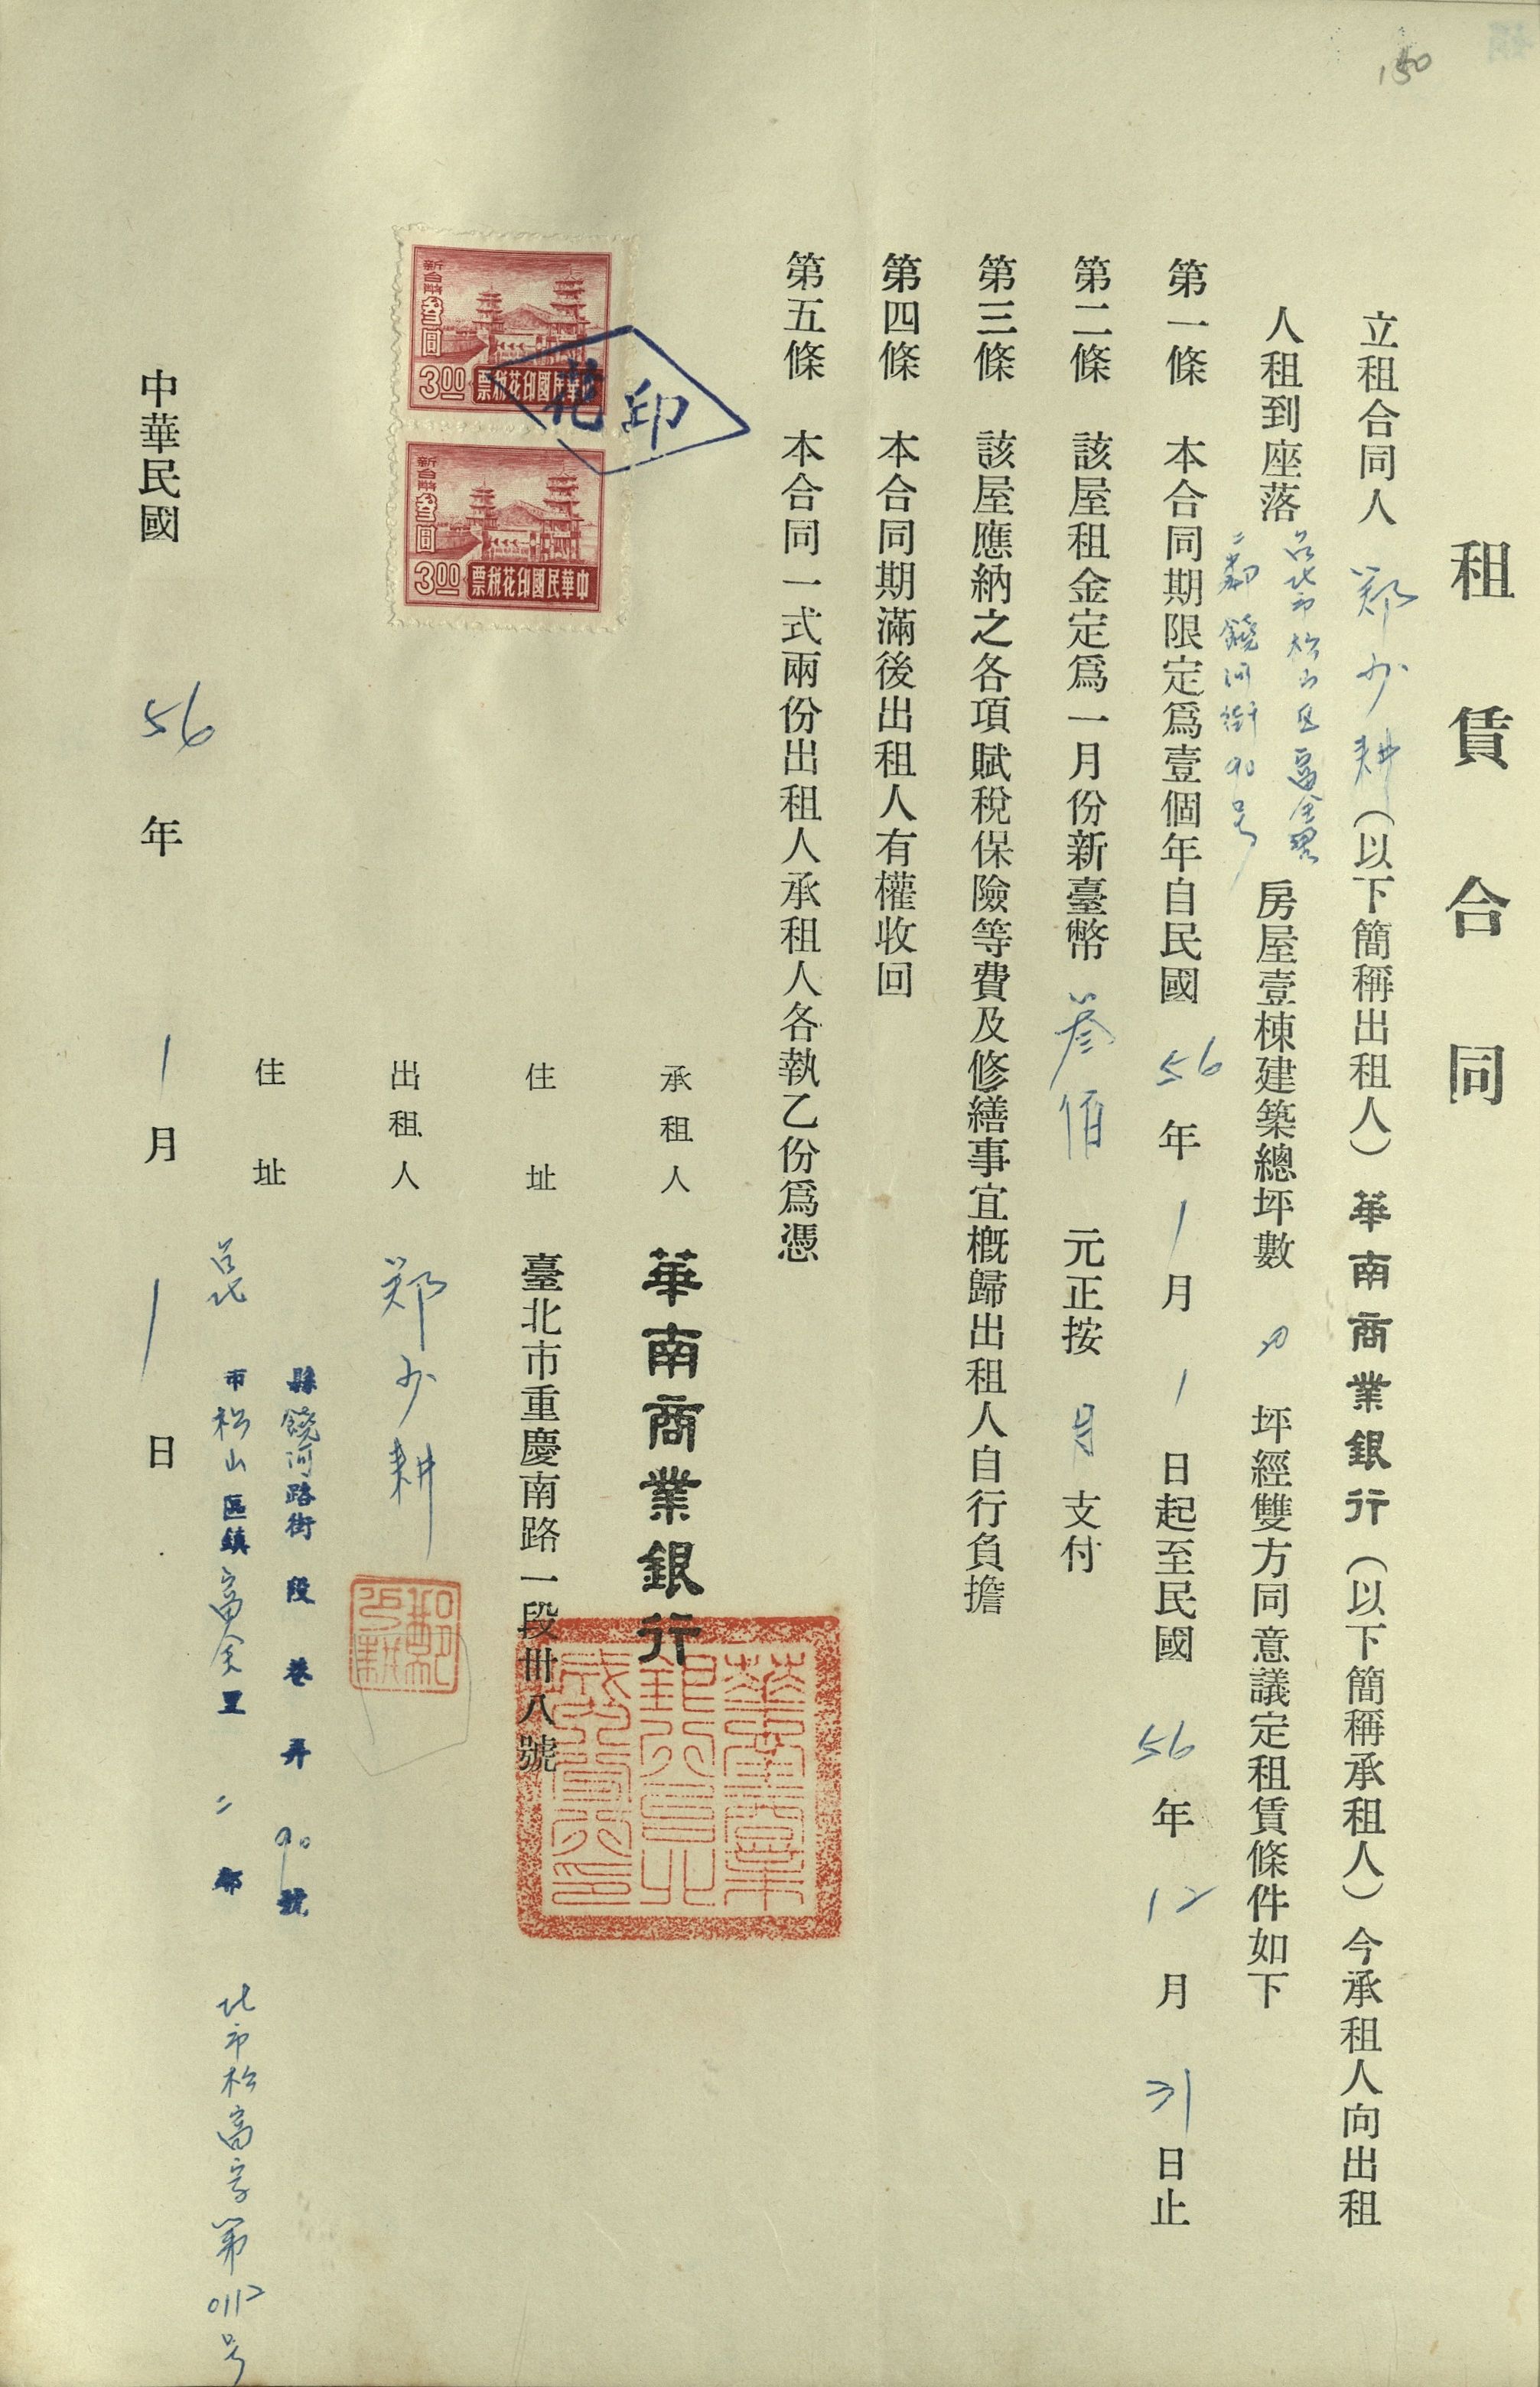 150
租賃合同
立租合同人 郑少耕（以下簡稱出租人）華南商業銀行（以下簡稱承租人）今承租人向出租
人租到座落 台北市松山区富全里
二鄰饒河街90号 房屋壹棟建築總坪數 坪經雙方同意議定租賃條件如下
第一條 本合同期限定爲壹個年自民國 56 年 1 月 1 日起至民國 56 年 12 月 31 日止
第二條 該屋租金定爲一月份新臺幣 叁佰 元正按 月 支付
第三條 該屋應納之各項賦稅保險等費及修繕事宜概歸出租人自行負擔
第四條 本合同期滿後出租人有權收回
第五條 本合同一式兩份出租人承租人各執乙份爲憑
印花
新台幣叁圓
3.00
票稅花印國民華中
新台幣叁圓
3.00
票稅花印國民華中
承租人 華南商業銀行
住址 臺北市重慶南路一段卌八號
出租人 郑少耕
住址 台北 縣市 饒河路街 段 巷 弄 90 號
松山區鎮富全里 二 鄰
北市松高字第0112号
中華民國 56 年 1 月 1 日